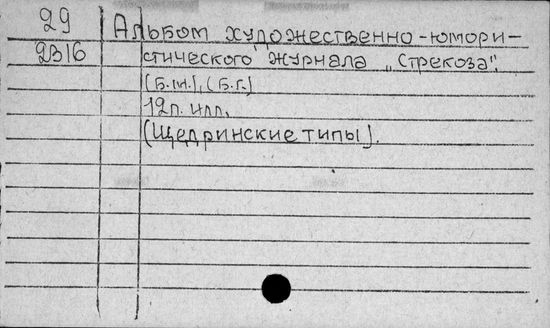 29 Альбом художественно-юмори-
2316 стического журнала „Стрекоза".
(Б.м.), (Б.г.)
12 л. илл.
(Щедринские типы).